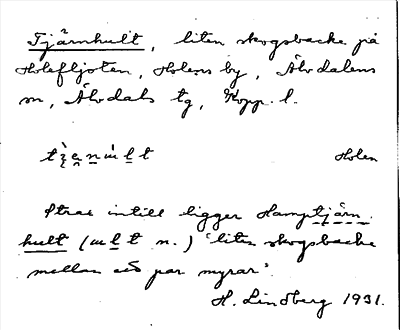 Tjärnhult, liten skogsbacke på
Holefljoten, Holens by, Älvdalens
sn, Älvdals tg, Kopp. l.
Holen
Strax intill ligger Hamptjärn-
hult (ult n.) "liten skogsbacke
mellan ett par myrar".
H. Lindberg 1931.